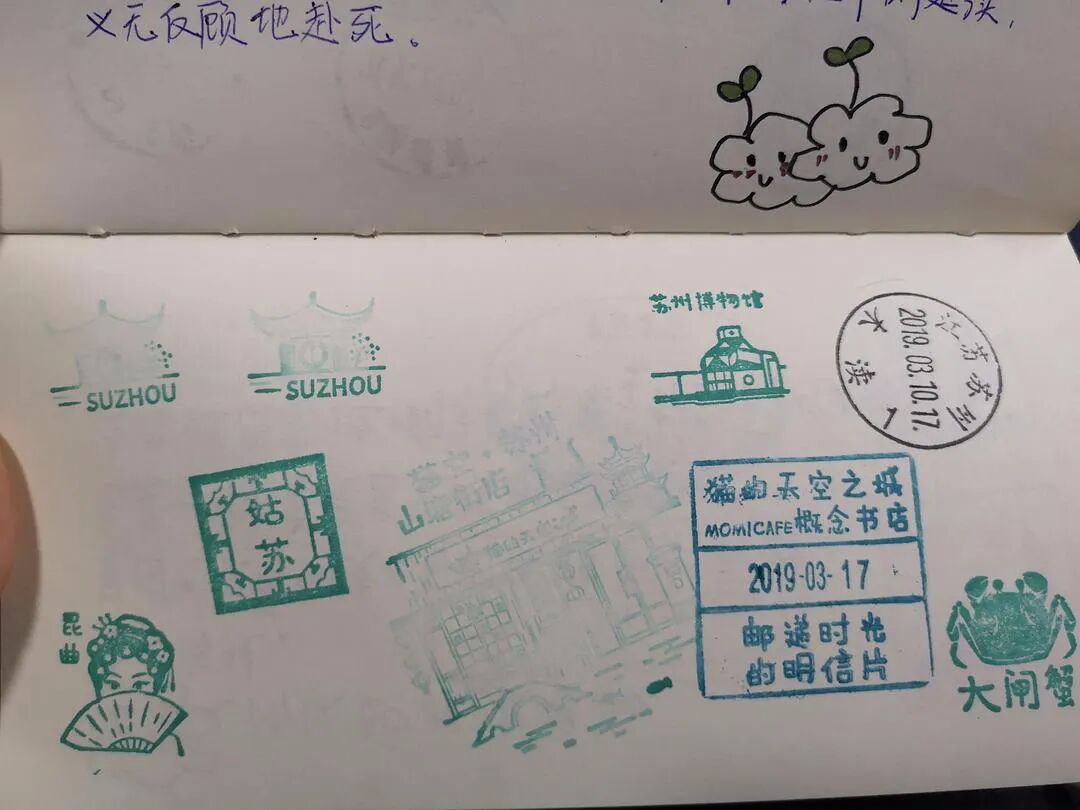 义无反顾地赴死。
SUZHOU
SUZHOU
苏州博物馆
江苏苏
2019.03.10.17.
木渎
姑
苏
山塘街店
猫的天空之城
MOMICAFE概念书店
2019-03-17
邮递时光
的明信片
昆
曲
大闸蟹